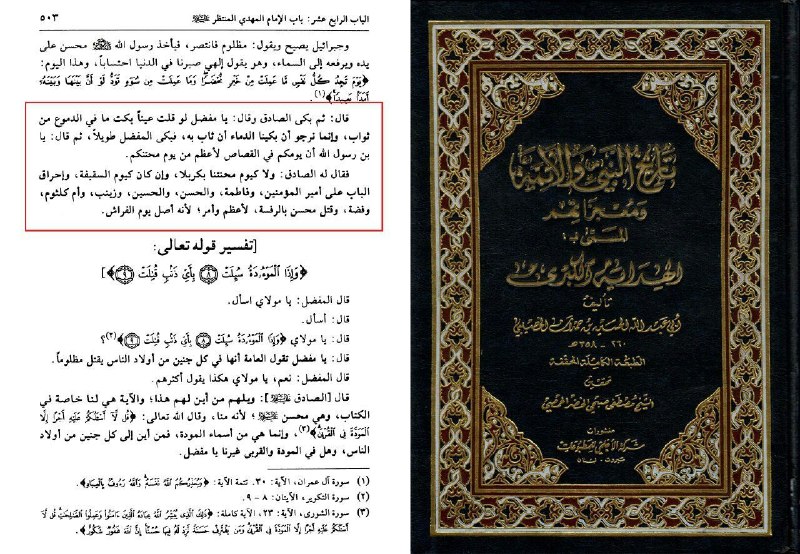 الباب الرابع عشر: باب الإمام المهدي المنتظر ﷺ
٥٠٣
وجبرائيل يصيح ويقول: مظلوم فانتصر، فيأخذ رسول الله ﷺ محسن على
يده ويرفعه إلى السماء، وهو يقول إلهي صبرنا في الدنيا احتساباً، وهذا اليوم:
﴿يَوْمَ تَجِدُ كُلُّ نَفْسٍ مَّا عَمِلَتْ مِنْ خَيْرٍ مُّحْضَرًا وَمَا عَمِلَتْ مِن سُوٓءٍ تَوَدُّ لَوْ أَنَّ بَيْنَهَا وَبَيْنَهُۥٓ
أَمَدًا بَعِيدًا﴾(١).
قال: ثم بكى الصادق وقال: يا مفضل لو قلت عيناً بكت ما في الدموع من
ثواب، وإنما نرجو أن بكينا الدماء أن ثاب به، فبكى المفضل طويلاً، ثم قال: يا
بن رسول الله أن يومكم في القصاص لأعظم من يوم محنتكم.
فقال له الصادق: ولا كيوم محنتنا بكربلا، وإن كان كيوم السقيفة، وإحراق
الباب على أمير المؤمنين، وفاطمة، والحسن، والحسين، وزينب، وأم كلثوم،
وفضة، وقتل محسن بالرفسة، لأعظم وأمر؛ لأنه أصل يوم الفراش.
[تفسير قوله تعالى:
﴿وَإِذَا ٱلْمَوْءُۥدَةُ سُئِلَتْ ٨ بِأَىِّ ذَنۢبٍ قُتِلَتْ ٩﴾]
قال المفضل: يا مولاي اسأل.
قال: أسأل.
قال: يا مولاي ﴿وَإِذَا ٱلْمَوْءُۥدَةُ سُئِلَتْ ٨ بِأَىِّ ذَنۢبٍ قُتِلَتْ ٩﴾(٢)؟
قال: يا مفضل تقول العامة أنها في كل جنين من أولاد الناس يقتل مظلوماً.
قال المفضل: نعم، يا مولاي هكذا يقول أكثرهم.
قال [الصادق ﷺ]: ويلهم من أين لهم هذا؛ والآية هي لنا خاصة في
الكتاب، وهي محسن ﷺ؛ لأنه منا، وقال الله تعالى: ﴿قُل لَّآ أَسْـَٔلُكُمْ عَلَيْهِ أَجْرًا إِلَّا
ٱلْمَوَدَّةَ فِى ٱلْقُرْبَىٰ﴾(٣)، وإنما هي من أسماء المودة، فمن أين إلى كل جنين من أولاد
الناس، وهل في المودة والقربى غيرنا يا مفضل.
(١) سورة آل عمران، الآية: ٣٠. تتمة الآية: ﴿وَيُحَذِّرُكُمُ ٱللَّهُ نَفْسَهُۥ وَٱللَّهُ رَءُوفٌۢ بِٱلْعِبَادِ﴾.
(٢) سورة التكوير، الآيتان: ٨ - ٩.
(٣) سورة الشورى، الآية: ٢٣، الآية كاملة: ﴿ذَٰلِكَ ٱلَّذِى يُبَشِّرُ ٱللَّهُ عِبَادَهُ ٱلَّذِينَ ءَامَنُوا۟ وَعَمِلُوا۟ ٱلصَّٰلِحَٰتِ قُل لَّآ
أَسْـَٔلُكُمْ عَلَيْهِ أَجْرًا إِلَّا ٱلْمَوَدَّةَ فِى ٱلْقُرْبَىٰ وَمَن يَقْتَرِفْ حَسَنَةً نَّزِدْ لَهُۥ فِيهَا حُسْنًا إِنَّ ٱللَّهَ غَفُورٌ شَكُورٌ﴾.
تاريخ النبي والأئمة
ومعجزاتهم
المسمى بـ:
الهداية الكبرى
تأليف
أبي عبد الله الحسين بن حمدان الخصيبي
٢٦٠ - ٣٥٨هـ
الطبعة الكاملة المحققة
تحقيق
الشيخ مصطفى صبحي الخضر الحمصي
منشورات
شركة الأعلمي للمطبوعات
بيروت - لبنان